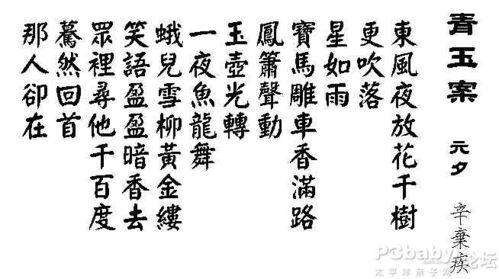 青玉案 元夕 辛棄疾
東風夜放花千樹
更吹落
星如雨
寶馬雕車香滿路
鳳簫聲動
玉壺光轉
一夜魚龍舞
蛾兒雪柳黃金縷
笑語盈盈暗香去
眾裡尋他千百度
驀然回首
那人卻在
PCbaby论坛
太平洋亲子网